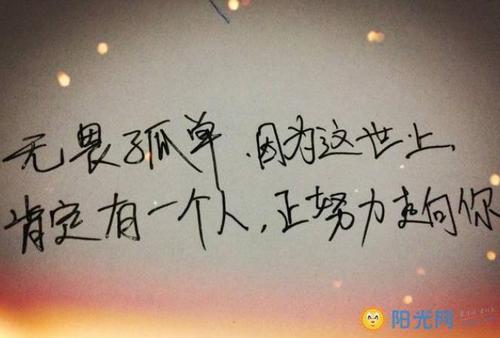 无畏孤单.因为这世上,
肯定有一个人,正努力走向你
阳光网